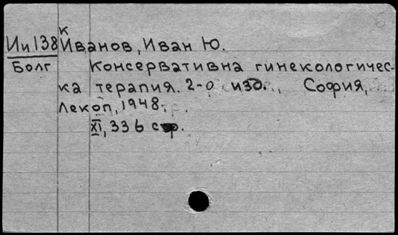 К
Ии138 Иванов, Иван Ю.
Болг Консервативна гинекологичес-
ка терапия. 2-о изд., София,
Лекоп, 1948.
XI, 336 стр.